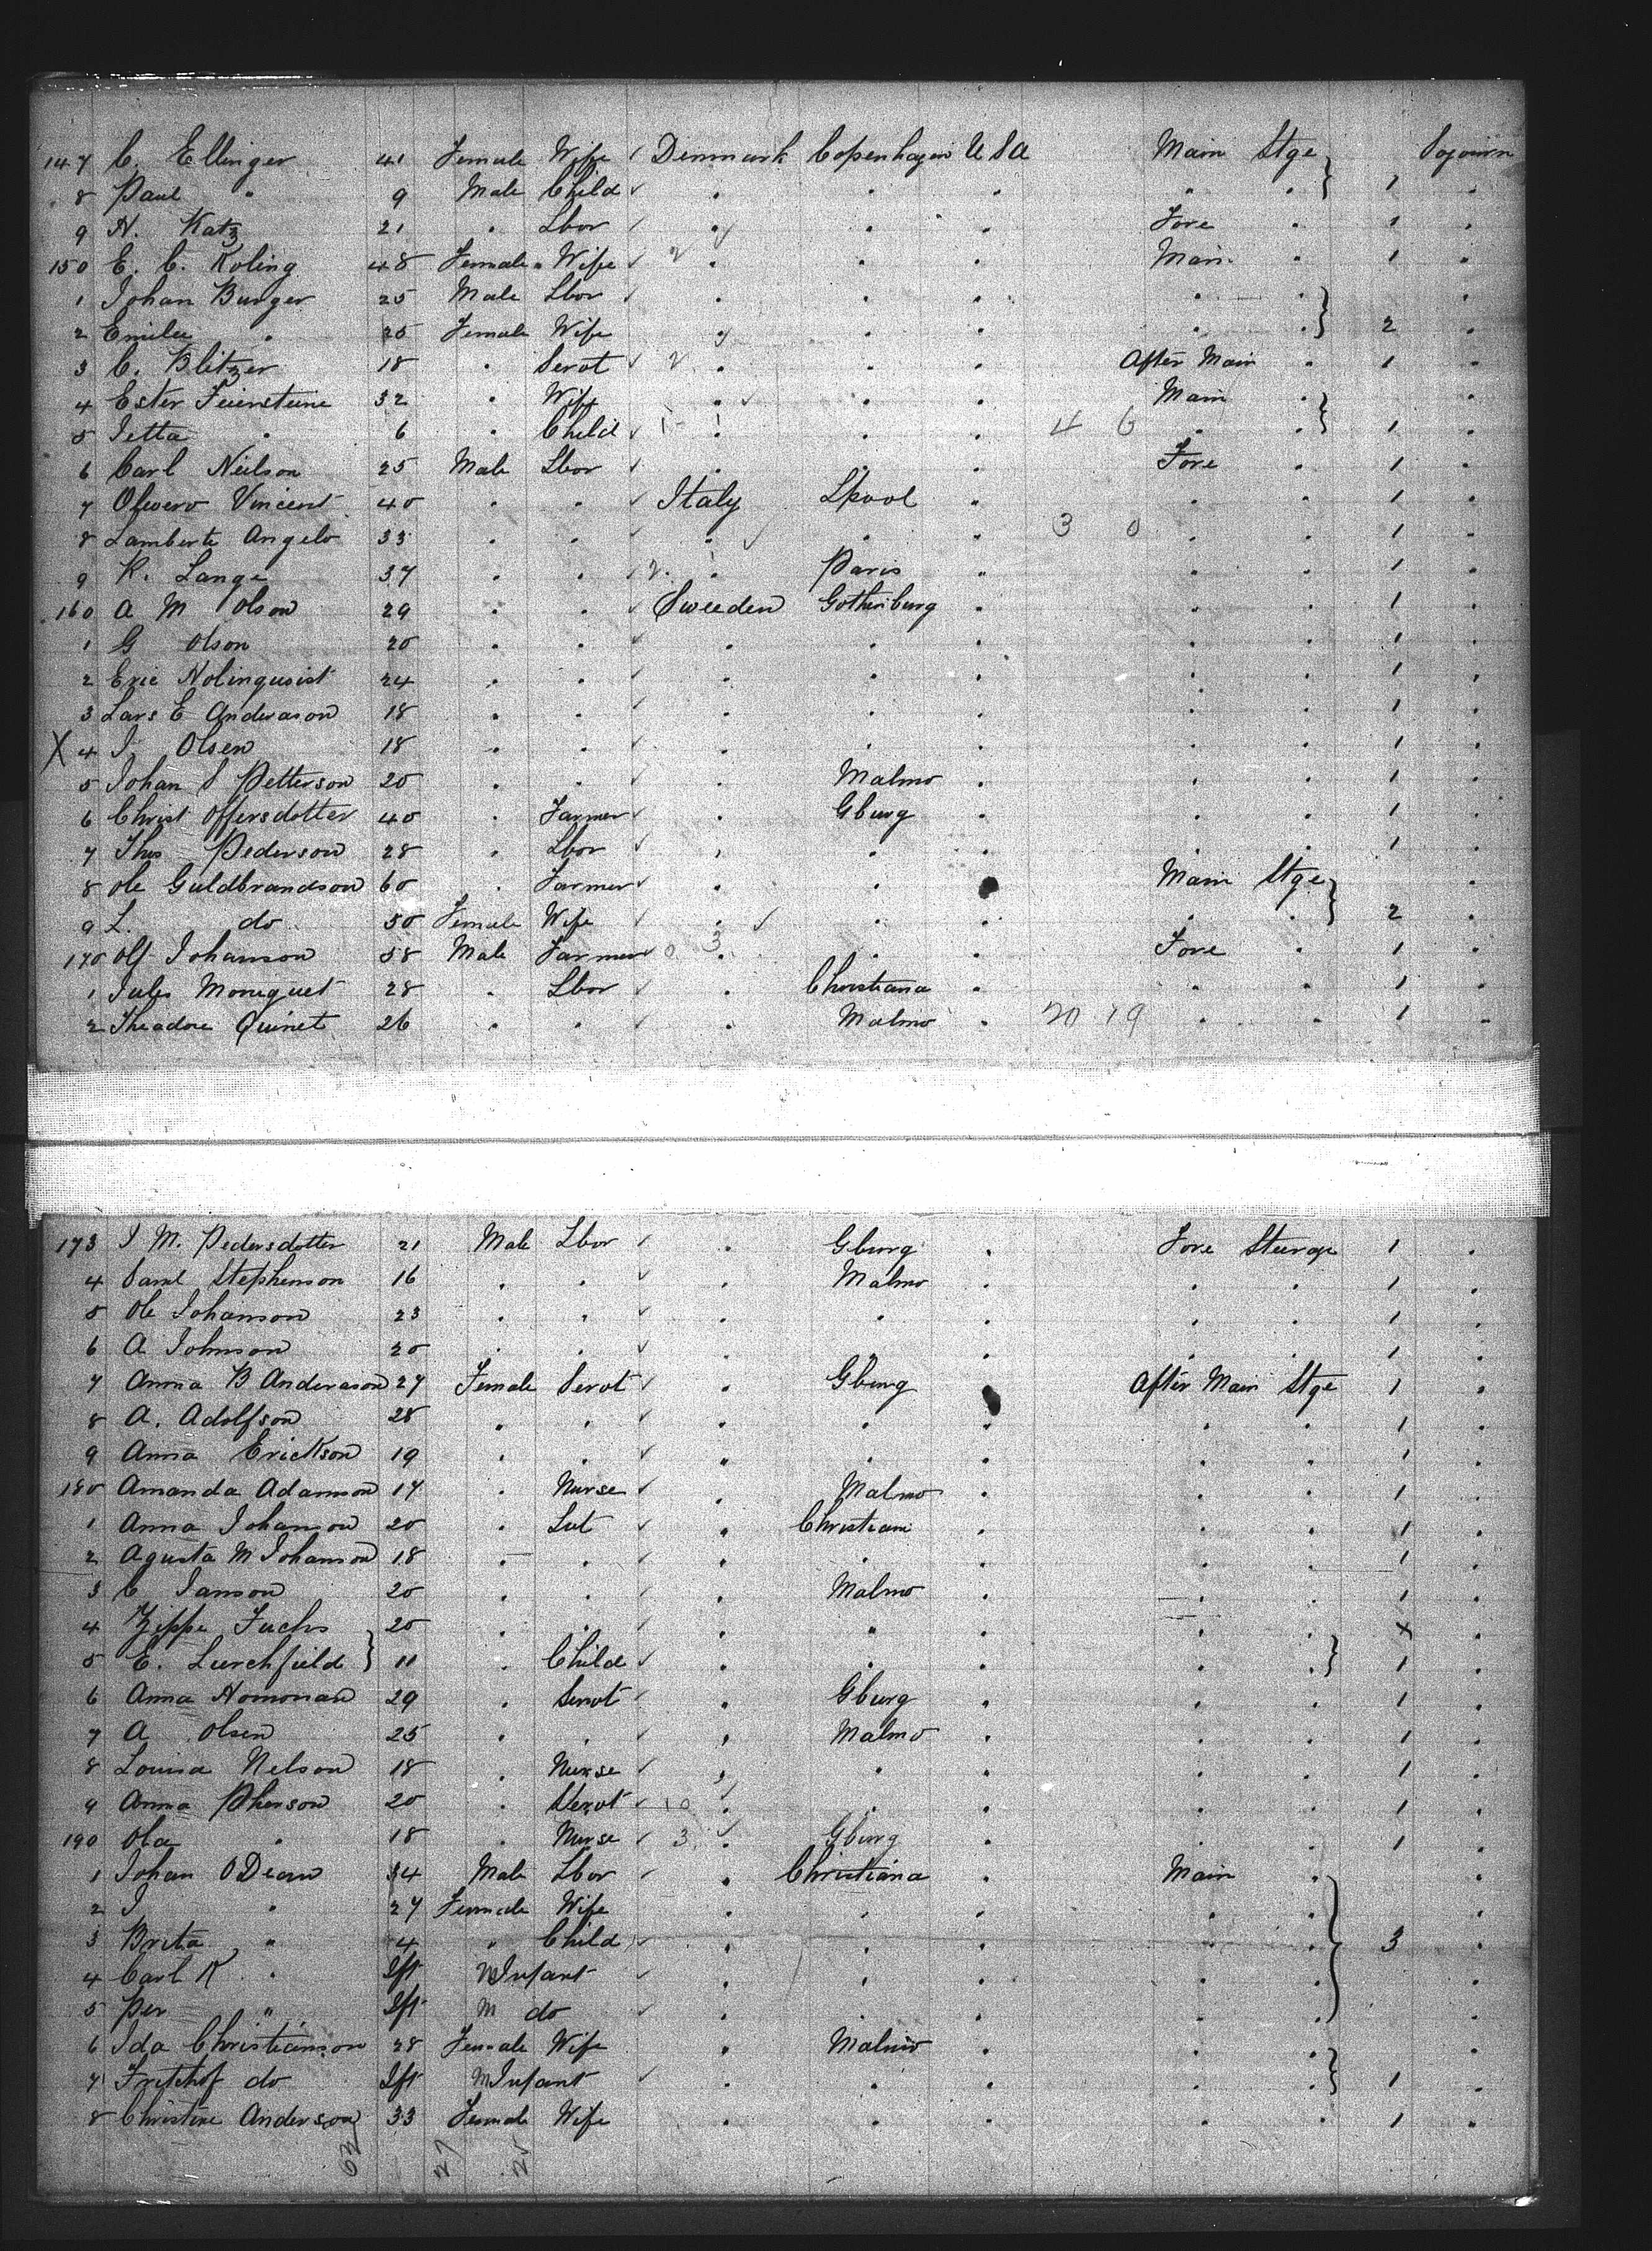 147 C. Ellinger 41 Female Wife ✓ Denmark Copenhagen U S A Main Stge } Sojourn
8 Paul " 9 Male Child ✓ " " " " " } 1 "
9 N. Katz 21 " Lbor ✓ " " " Fore " 1 "
150 E. C. Koling 48 Female " Wife ✓ 2 " " " Main " 1 "
1 Johan Burger 25 Male Lbor ✓ " " " " " } "
2 Emilie " 25 Female Wife " " " " " } 2 "
3 C. Blitzer 18 " Servt ✓ 2 " " " After Main " 1 "
4 Ester Feiersteine 32 " Wife " " " Main " } "
5 Jetta " 6 " Child ✓ 1 - 1 " " " 4 6 " " } 1 "
6 Carl Neilson 25 Male Lbor ✓ " " " Fore " 1 "
7 Olivero Vincent 40 " " ✓ Italy Lpool " " " 1 "
8 Lamberte Angelo 33 " " ✓ " " " 3 0 " " 1 "
9 K. Lange 37 " " ✓ 2 " Paris " " " 1 "
160 A M Olson 29 " " ✓ Sweeden Gothenburg " " " 1 "
1 G Olson 20 " " ✓ " " " " " 1 "
2 Eric Nolinqusist 24 " " ✓ " " " " " 1 "
3 Lars E Anderason 18 " " ✓ " " " " " 1 "
X 4 J. Olsen 18 " " ✓ " " " " " 1 "
5 Johan S Petterson 20 " " ✓ " Malmo " " " 1 "
6 Christ Offersdotter 40 " Farmer ✓ " Gburg " " " 1 "
7 Thos Pederson 28 " Lbor ✓ " " " " " 1 "
8 Ole Guldbrandson 60 " Farmer ✓ " " " Main Stge } "
9 L. do 50 Female Wife ✓ " " " " " } 2 "
170 Olf Johanson 58 Male Farmer ✓ 0 3 " " " Fore " 1 "
1 Jules Moreguet 28 " Lbor ✓ " Christiana " " " 1 "
2 Theadore Quinet 26 " " ✓ " Malmo " 20 19 " " 1 "
173 J M. Pedersdotter 21 Male Lbor ✓ " Gburg " Fore Steerage 1 "
4 Saml Stephenson 16 " " ✓ " Malmo " " " 1 "
5 Ole Johanson 23 " " ✓ " " " " " 1 "
6 A Johnson 20 " " ✓ " " " " " 1 "
7 Anna B Anderason 27 Female Servt ✓ " Gburg " After Main Stge 1 "
8 A. Adolfson 28 " " ✓ " " " " " 1 "
9 Anna Erickson 19 " " ✓ " " " " " 1 "
180 Amanda Adamson 17 " Nurse ✓ " Malmo " " " 1 "
1 Anna Johanson 20 " ✓ " Christian " " " 1 "
2 Agusta M Johanson 18 " " ✓ " " " " " 1 "
3 C Janson 20 " " ✓ " Malmo " " " 1 "
4 Zippe Fuchs } 20 " " ✓ " " " " " } X "
5 E. Lurchfield } 11 " Child ✓ " " " " " } 1 "
6 Anna Nomonan 29 " Servt ✓ " Gburg " " " 1 "
7 A Olsen 25 " " ✓ " Malmo " " " 1 "
8 Louisa Nelson 18 " Nurse ✓ " " " " " 1 "
9 Anna Pherson 20 " Servt ✓ 10 " " " " " 1 "
190 Ola " 18 " Nurse ✓ 3 " Gburg " " " 1 "
1 Johan O Dean 34 Male Lbor ✓ " Christiana " Main " } "
2 J " 27 Female Wife " " " " " "
3 Brita " 4 " Child ✓ " " " " " 3 "
4 Carl K " Ift M Infant ✓ " " " " " "
5 Per " Ift M do ✓ " " " " " } "
6 Ida Christianson 28 Female Wife " Malmo " " " } "
7 Fritchof do Ift M Infant ✓ " " " " " } 1 "
8 Christine Anderson 33 Female Wife " " " " " 1 "
62 27 25